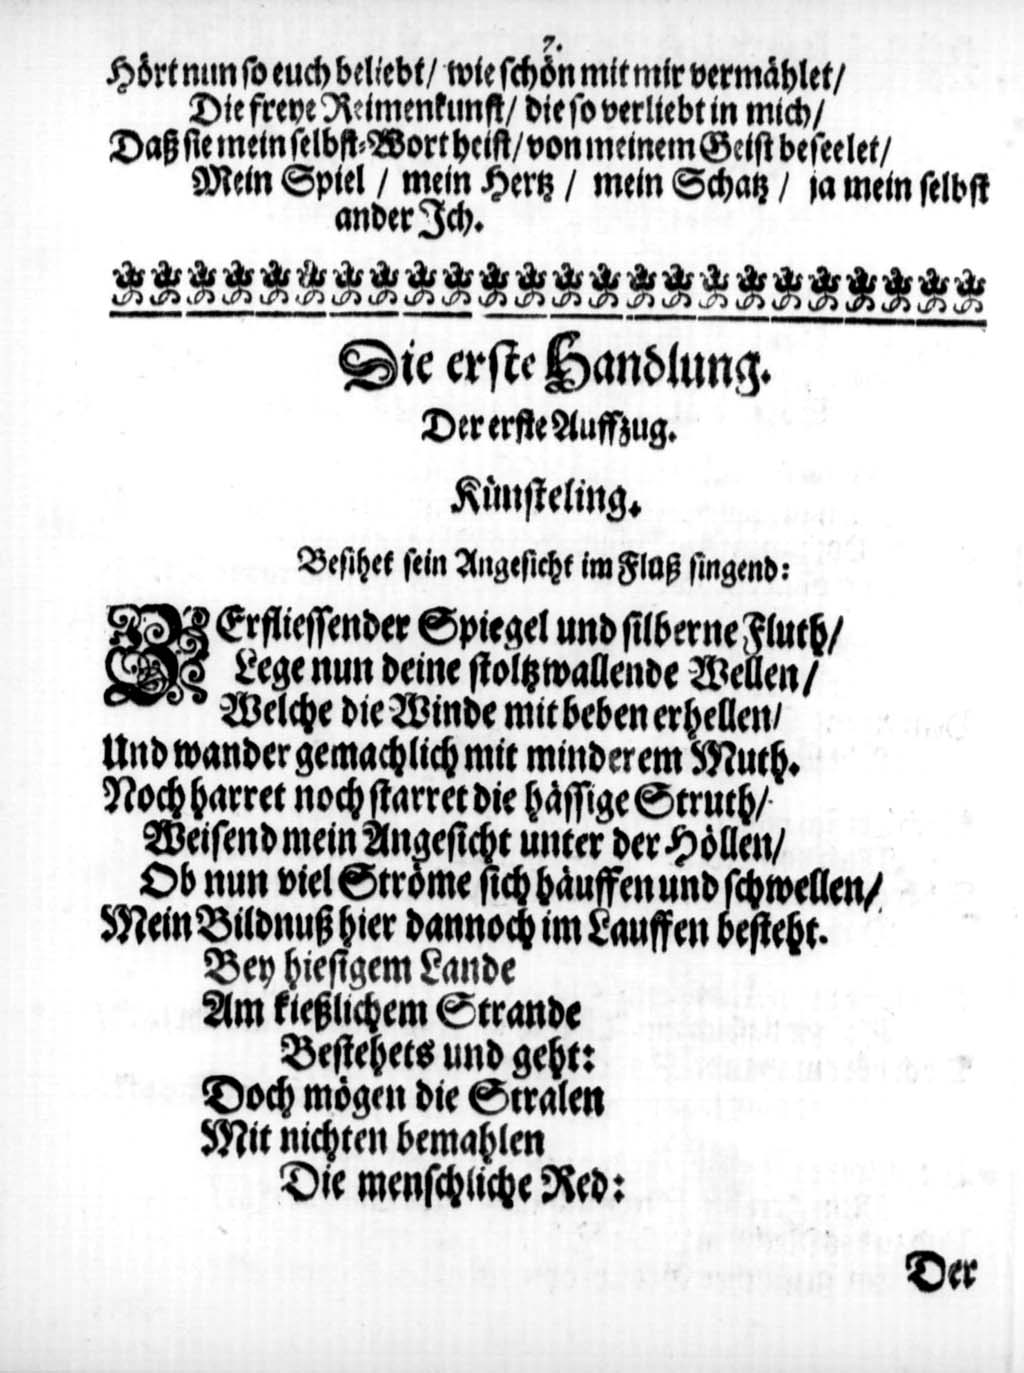 7.
Hört nun so euch beliebt/ wie schön mit mir vermählet/
Die freye Reimenkunst/ die so verliebt in mich/
Daß sie mein selbst-Wort heist/ von meinem Geist beseelet/
Mein Spiel / mein Hertz / mein Schatz / ja mein selbst
ander Ich.
Die erste Handlung.
Der erste Auffzug.
Künsteling.
Besihet sein Angesicht im Fluß singend:
ZErfliessender Spiegel und silberne Fluth/
Lege nun deine stoltzwallende Wellen/
Welche die Winde mit beben erhellen/
Und wander gemachlich mit minderem Muth.
Noch harret noch starret die hässige Struth/
Weisend mein Angesicht unter der Höllen/
Ob nun viel Ströme sich häuffen und schwellen/
Mein Bildnuß hier dannoch im Lauffen besteht.
Bey hiesigem Lande
Am kießlichem Strande
Bestehets und geht:
Doch mögen die Stralen
Mit nichten bemahlen
Die menschliche Red:
Der